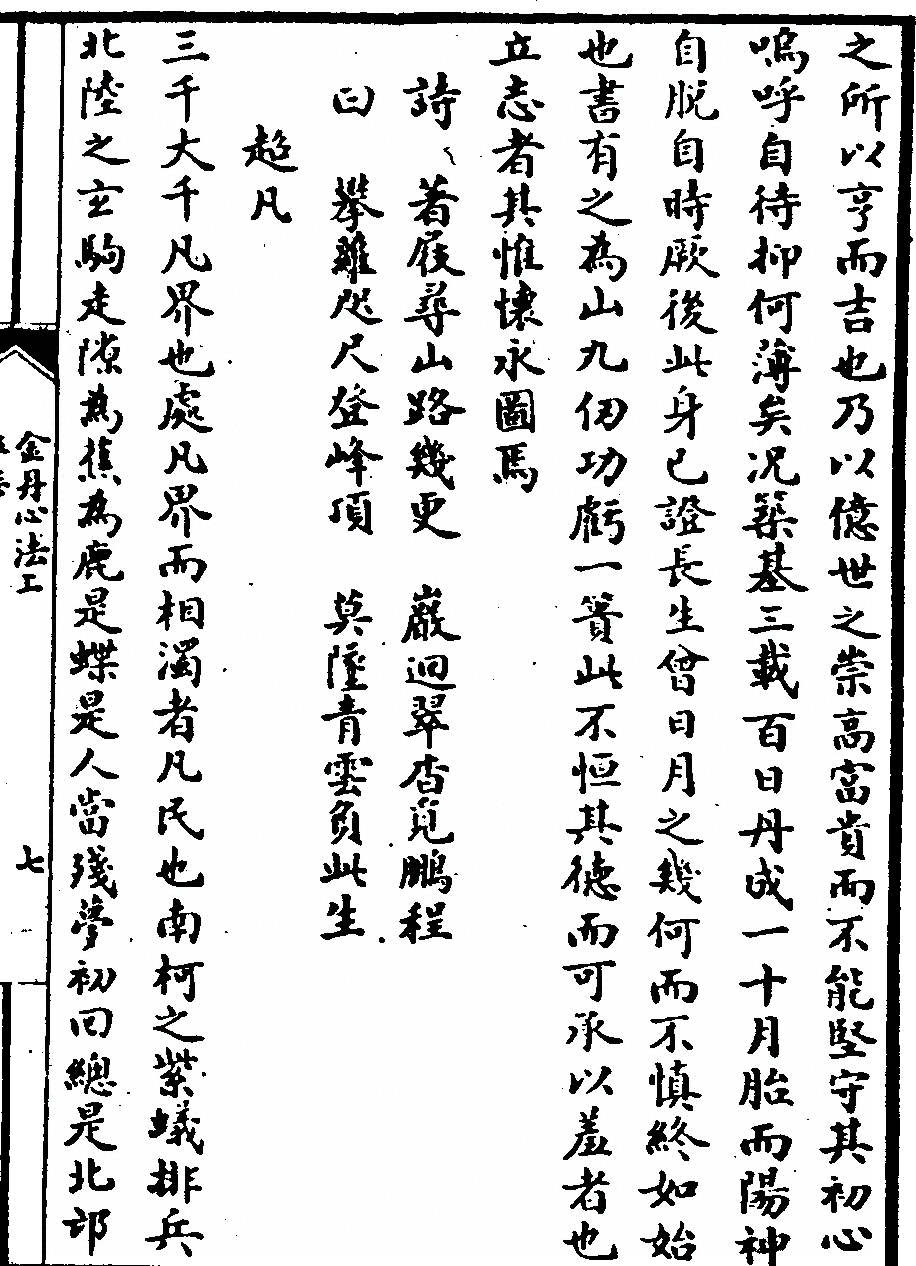 之所以亨而吉也乃以億世之崇高富貴而不能堅守其初心
嗚呼自待抑何薄矣况築基三載百日丹成一十月胎而陽神
自脱自時厥後此身已證長生曾日月之幾何而不慎終如始
也書有之為山九仞功虧一簣此不恒其德而可承以羞者也
立志者其惟懷永圖焉
詩、著屐尋山路幾更　巖迴翠杳覓鵬程
曰　攀雞咫尺登峰頂　莫墜青雲負此生
超凡
三千大千凡界也處凡界而相濁者凡民也南柯之紫蟻排兵
北陸之玄駒走隙為蕉為鹿是蝶是人當殘夢初回總是北邙
金丹心法工
七